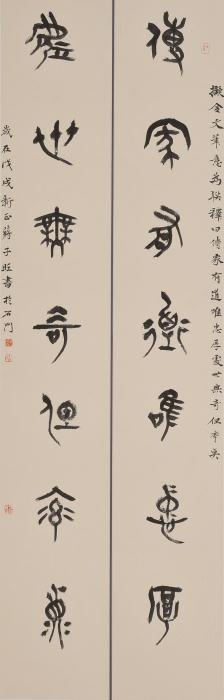 擬金文筆意為聯釋曰傳家有道唯忠厚處世無奇但率真
傳家有道唯忠厚
處世無奇但率真
歲在戊戌新正蔣子旺書於石門